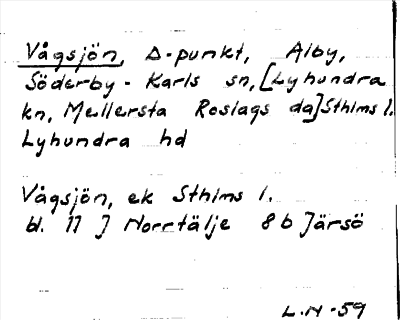 Vågsjön, Δ-punkt, Alby,
Söderby-Karls sn, [Lyhundra
kn, Mellersta Roslags da] Sthlms l.
Lyhundra hd
Vågsjön, ek Sthlms l.
bl. 11 J Norrtälje 8b Järsö
L.N-59